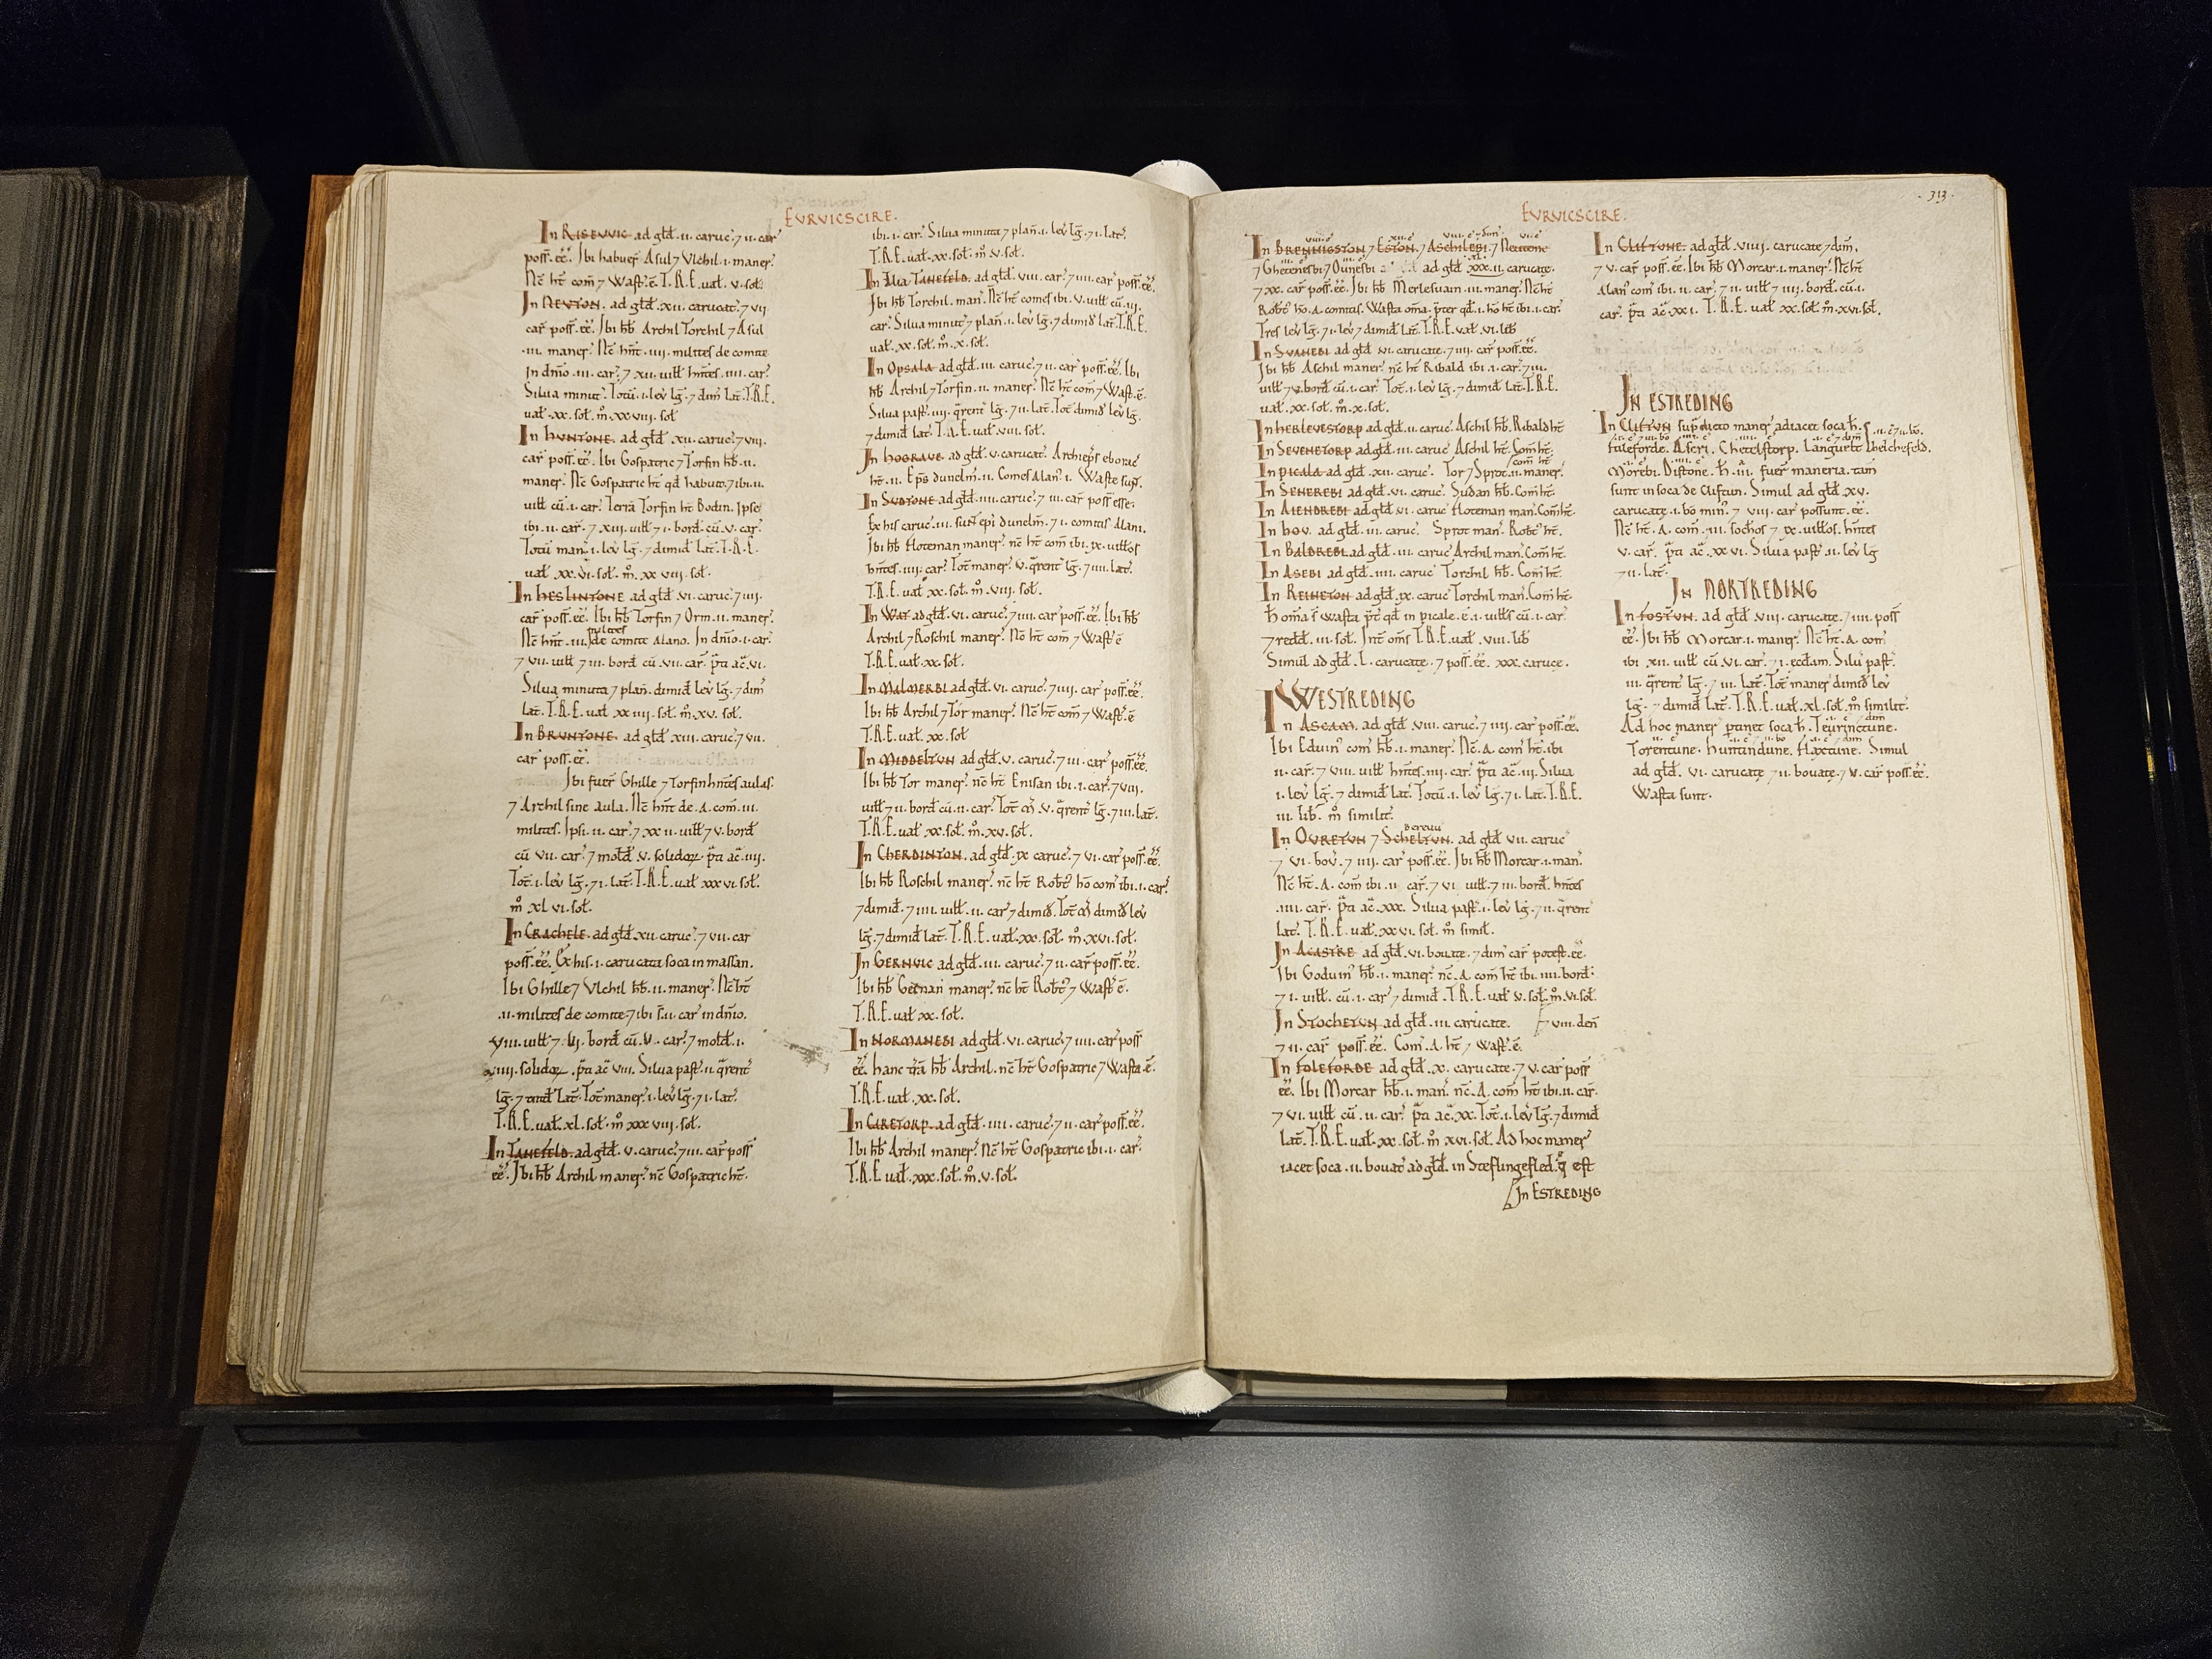 EVRVICSCIRE.
In RISEWIC ad gld. ii. caruc. 7 ii. car
poss. ee. Ibi habuer Asul 7 Vlchil. i. maner.
Nc ht com 7 Wast. e. T.R.E. ual. v. sol.
In NEVTON. ad gld. xii. carucat. 7 vii
car poss. ee. Ibi hb Archil Torchil 7 Asul
.iii. maner. Nc hnt .iiii. milites de comite
In dnio .iii. car. 7 xii. uill hntes .iiii. car.
Silua minut. Totu .i. lev lg. 7 dim lat. T.R.E.
ual. xx. sol. m xxviii. sol
In HVNTONE. ad gld xii. caruc. 7 viii.
car poss. ee. Ibi Gospatric 7 Torfin hb .ii.
maner. Nc Gospatric ht qd habuit. 7 ibi .ii.
uill cu .i. car. Terra Torfin ht Bodin. Ipse
ibi .ii. car. 7 xiii. uill 7 .i. bord. cu .v. car.
Totu man .i. lev lg. 7 dimid lat. T.R.E.
ual xxvi. sol. m xxviii. sol.
In HESLINTONE ad gld vi. caruc. 7 iiii.
car poss. ee. Ibi hb Torfin 7 Orm .ii. maner.
Nc hnt .iii. milites de comite Alano. In dnio .i. car.
7 vii. uill 7 iii. bord cu .vii. car. pti ac .vi.
Silua minuta 7 plan. dimid lev lg. 7 dim
lat. T.R.E. ual xxiiii. sol. m xv. sol.
In BRVNTONE ad gld xiii. caruc. 7 vii.
car poss. ee.
Ibi fuer Ghille 7 Torfin hntes aulas.
7 Archil sine aula. Nc hnt de .A. com .iii.
milites. Ipsi .ii. car. 7 xxii. uill 7 v. bord
cu vii. car. 7 mold .v. solidoz. pti ac .iiii.
Tot .i. lev lg. 7 .i. lat. T.R.E. ual xxxvi. sol.
m xlvi. sol.
In CRACHELE ad gld xii. caruc. 7 vii. car
poss. ee. Ex his .i. carucata soca in massan.
Ibi Ghille 7 Vlchil hb .ii. maner. Nc ht
.ii. milites de comite 7 ibi s .ii. car in dnio.
viii. uill 7 bord cu .v. car. 7 mold .i.
solidoz. pti ac viii. Silua past .ii. qrent
lg. 7 lat. Tot maner .i. lev lg. 7 .i. lat.
T.R.E. ual. xl. sol. m xxxviii. sol.
In TANEFELD. ad gld .v. caruc. 7 iii. car poss
ee. Ibi hb Archil maner. nc Gospatric ht.
ibi .i. car. Silua minuta 7 plan .i. lev lg. 7 .i. lat.
T.R.E. ual. xx. sol. m .v. sol.
In alia TANEFELD. ad gld. viii. car. 7 iiii. car poss. ee.
Ibi hb Torchil. man. Nc ht comes ibi .v. uill cu .iii.
car. Silua minut 7 plan .i. lev lg. 7 dimid lat. T.R.E.
ual. xx. sol. m .x. sol.
In OPSALA ad gld .iii. caruc. 7 ii. car poss. ee. Ibi
hb Archil 7 Torfin .ii. maner. Nc ht com 7 Wast. e.
Silua past .iiii. qrent lg. 7 ii. lat. Tot dimid lev lg.
7 dimid lat. T.R.E. ual viii. sol.
In HOGRAVE ad gld .v. carucat. Archieps eborac
ht .ii. Eps dunelm .ii. Comes Alan .i. Waste sunt.
In SVDTONE ad gld .iiii. caruc. 7 iii. car poss esse.
Ex his caruc .iii. sunt epi dunelm. 7 i. comitis Alani.
Ibi hb Hoteman maner. nc ht com ibi .ix. uillos
hntes .iiii. car. Tot maner .v. qrent lg. 7 iiii. lat.
T.R.E. ual xx. sol. m .viii. sol.
In WAT ad gld .vi. caruc. 7 iiii. car poss. ee. Ibi hb
Archil 7 Roschil maner. Nc ht com 7 Wast e
T.R.E. ual xx. sol.
In MALMERBI ad gld .vi. caruc. 7 iiii. car poss. ee.
Ibi hb Archil 7 Tor maner. Nc ht com 7 Wast. e
T.R.E. ual xx. sol
In MIDDELTVN ad gld .v. caruc. 7 iii. car poss. ee.
Ibi hb Tor maner. nc ht Enisan ibi .i. car. 7 viii.
uill 7 ii. bord cu .ii. car. Tot m .v. qrent lg. 7 iii. lat.
T.R.E. ual xx. sol. m xv. sol.
In CHERDINTON. ad gld .ix caruc. 7 vi. car poss. ee.
Ibi hb Roschil maner. nc ht Robt ho com ibi .i. car.
7 dimid. 7 iiii. uill .ii. car 7 dimid. Tot m dimid lev
lg. 7 dimid lat. T.R.E. ual xx. sol. m xvi. sol.
In GERNVIC ad gld .iii. caruc. 7 ii. car poss. ee.
Ibi hb Gernan maner. nc ht Robt 7 Wast e.
T.R.E. ual xx. sol.
In NORMANEBI ad gld .vi. caruc. 7 iiii. car poss
ee. hanc tra hb Archil. nc ht Gospatric 7 Wasta. e.
T.R.E. ual. xx. sol.
In CIRETORP. ad gld .iiii. caruc. 7 ii. car poss. ee.
Ibi hb Archil maner. Nc ht Gospatric ibi .i. car.
T.R.E ual. xxx. sol. m .v. sol.
EVRVICSCIRE.
.313.
In BRENNIGSTON 7 ESTON. 7 ASCHILEBI. 7 Neutone
7 Ghetenesbi 7 Ounesbi ad gld xxx.ii. carucate.
7 xx. car poss. ee. Ibi hb Merlesuain .iii. maner. Nc ht
Robt ho .A. comitis. Wasta oma. pter qd .i. ho ht ibi .i. car.
Tres lev lg. 7 .i. lev 7 dimid lat. T.R.E. ual .vi. lib
In SVANEBI ad gld vi. carucate. 7 iiii. car poss. ee.
Ibi hb Aschil maner. nc ht Ribald ibi .i. car. 7 iii.
uill 7 v. bord. cu .i. car. Tot .i. lev lg. 7 dimid lat. T.R.E.
ual xx. sol. m .x. sol.
In HERLEVESTORP ad gld .ii. caruc. Aschil hb. Ribald ht
In SEVENETORP ad gld .iii. caruc Aschil ht. Com ht.
In PICALA ad gld .xii. caruc. Tor 7 Sprot .ii. maner. com ht
In SENEREBI ad gld .vi. caruc. Sudan hb. Com ht.
In AIENDREBI ad gld .vi. caruc Hoteman man. Com ht.
In HOV. ad gld .iii. caruc. Sprot man. Robt ht.
In BALDREBI ad gld .iii. caruc Archil man. Com ht.
In ASEBI ad gld .iiii. caruc Torchil hb. Com ht.
In REINETON ad gld .ix. caruc Torchil man. Com ht.
H oma s wasta pt qd in picale. e. i. uills cu .i. car
7 redd .iii. sol. Int oms T.R.E. ual .viii. lib
Simul ad gld .L. carucate. 7 poss. ee. xxx. caruce.
WESTREDING
In ASCAM. ad gld .viii. caruc. 7 iiii. car poss. ee.
Ibi Eduin com hb .i. maner. Nc .A. com ht ibi
.ii. car. 7 viii. uill hntes .iii. car. pti ac .iii. Silua
.i. lev lg. 7 dimid lat. Totu .i. lev lg. 7 .i. lat. T.R.E.
iii. lib. m similit.
In OVRETVN 7 SCHELTVN. ad gld vii. caruc
bereuu
7 vi. bov. 7 iiii. car poss. ee. Ibi hb Morcar .i. man.
Nc ht .A. com ibi .ii car. 7 vi uill. 7 iii. bord. hntes
.iiii. car. pti ac .xxx. Silua past .i. lev lg. 7 ii. qrent
lat. T.R.E. ual. xxvi. sol. m simil.
In ACASTRE ad gld .vi. bouate. 7 dim car potest. ee.
Ibi Goduin hb .i. maner. nc .A. com ht ibi .iiii. bord.
7 .i. uill. cu .i. car 7 dimid. T.R.E. ual v. sol. m .vi. sol.
In STOCHETVN ad gld .iii. carucate. viii. den
7 ii. car poss. ee. Com .A. ht 7 Wast. e.
In FOLEFORDE ad gld .x. carucate. 7 v. car poss
ee. Ibi Morcar hb .i. man. nc .A. com ht ibi .ii. car.
7 vi. uill cu .ii. car. pti ac .xx. Tot .i. lev lg. 7 dimid
lat. T.R.E. ual. xx. sol. m xvi. sol. Ad hoc maner
iacet soca .ii. bouat ad gld. in Steflingefled. q est
In ESTREDING
In CLIFTVNE. ad gld .viiii. carucate 7 dim.
7 v. car poss. ee. Ibi hb Morcar .i. maner. Nc ht
Alan com ibi .ii. car. 7 ii. uill 7 iiii. bord. cu .i.
car. pti ac xxi. T.R.E. ual xx. sol. m xvi. sol.
IN ESTREDING
In Cliftun supdicto maner adiacet soca h.
fuleforde. Aseri. Chetelstorp. Languelt Abelchesfeld.
Morebi. Distone. H .iii. fuer maneria. tam
sunt in soca de Cliftun. Simul ad gld xv.
carucate .i. bo min. 7 viii. car possunt. ee.
Nc ht .A. com .iii. sochos 7 ix. uillos. hntes
v. car. pti ac .xxvi. Silua past .ii. lev lg
7 ii. lat.
IN NORTREDING
In FOSTVN. ad gld viii. carucate. 7 iiii poss
ee. Ibi hb Morcar .i. maner. Nc ht .A. com
ibi xii. uill cu .vi. car. 7 .i. eccdam. Silu past.
iii. qrent lg. 7 iii. lat. Tot maner dimid lev
lg. 7 dimid lat. T.R.E. ual. xl. sol. m similit.
Ad hoc maner ptinet soca h. Teurinctune.
Torentune. Huntindune. Flaxtune. Simul
ad gld. vi. carucate 7 ii. bouate. 7 v. car poss. ee.
Wasta sunt.